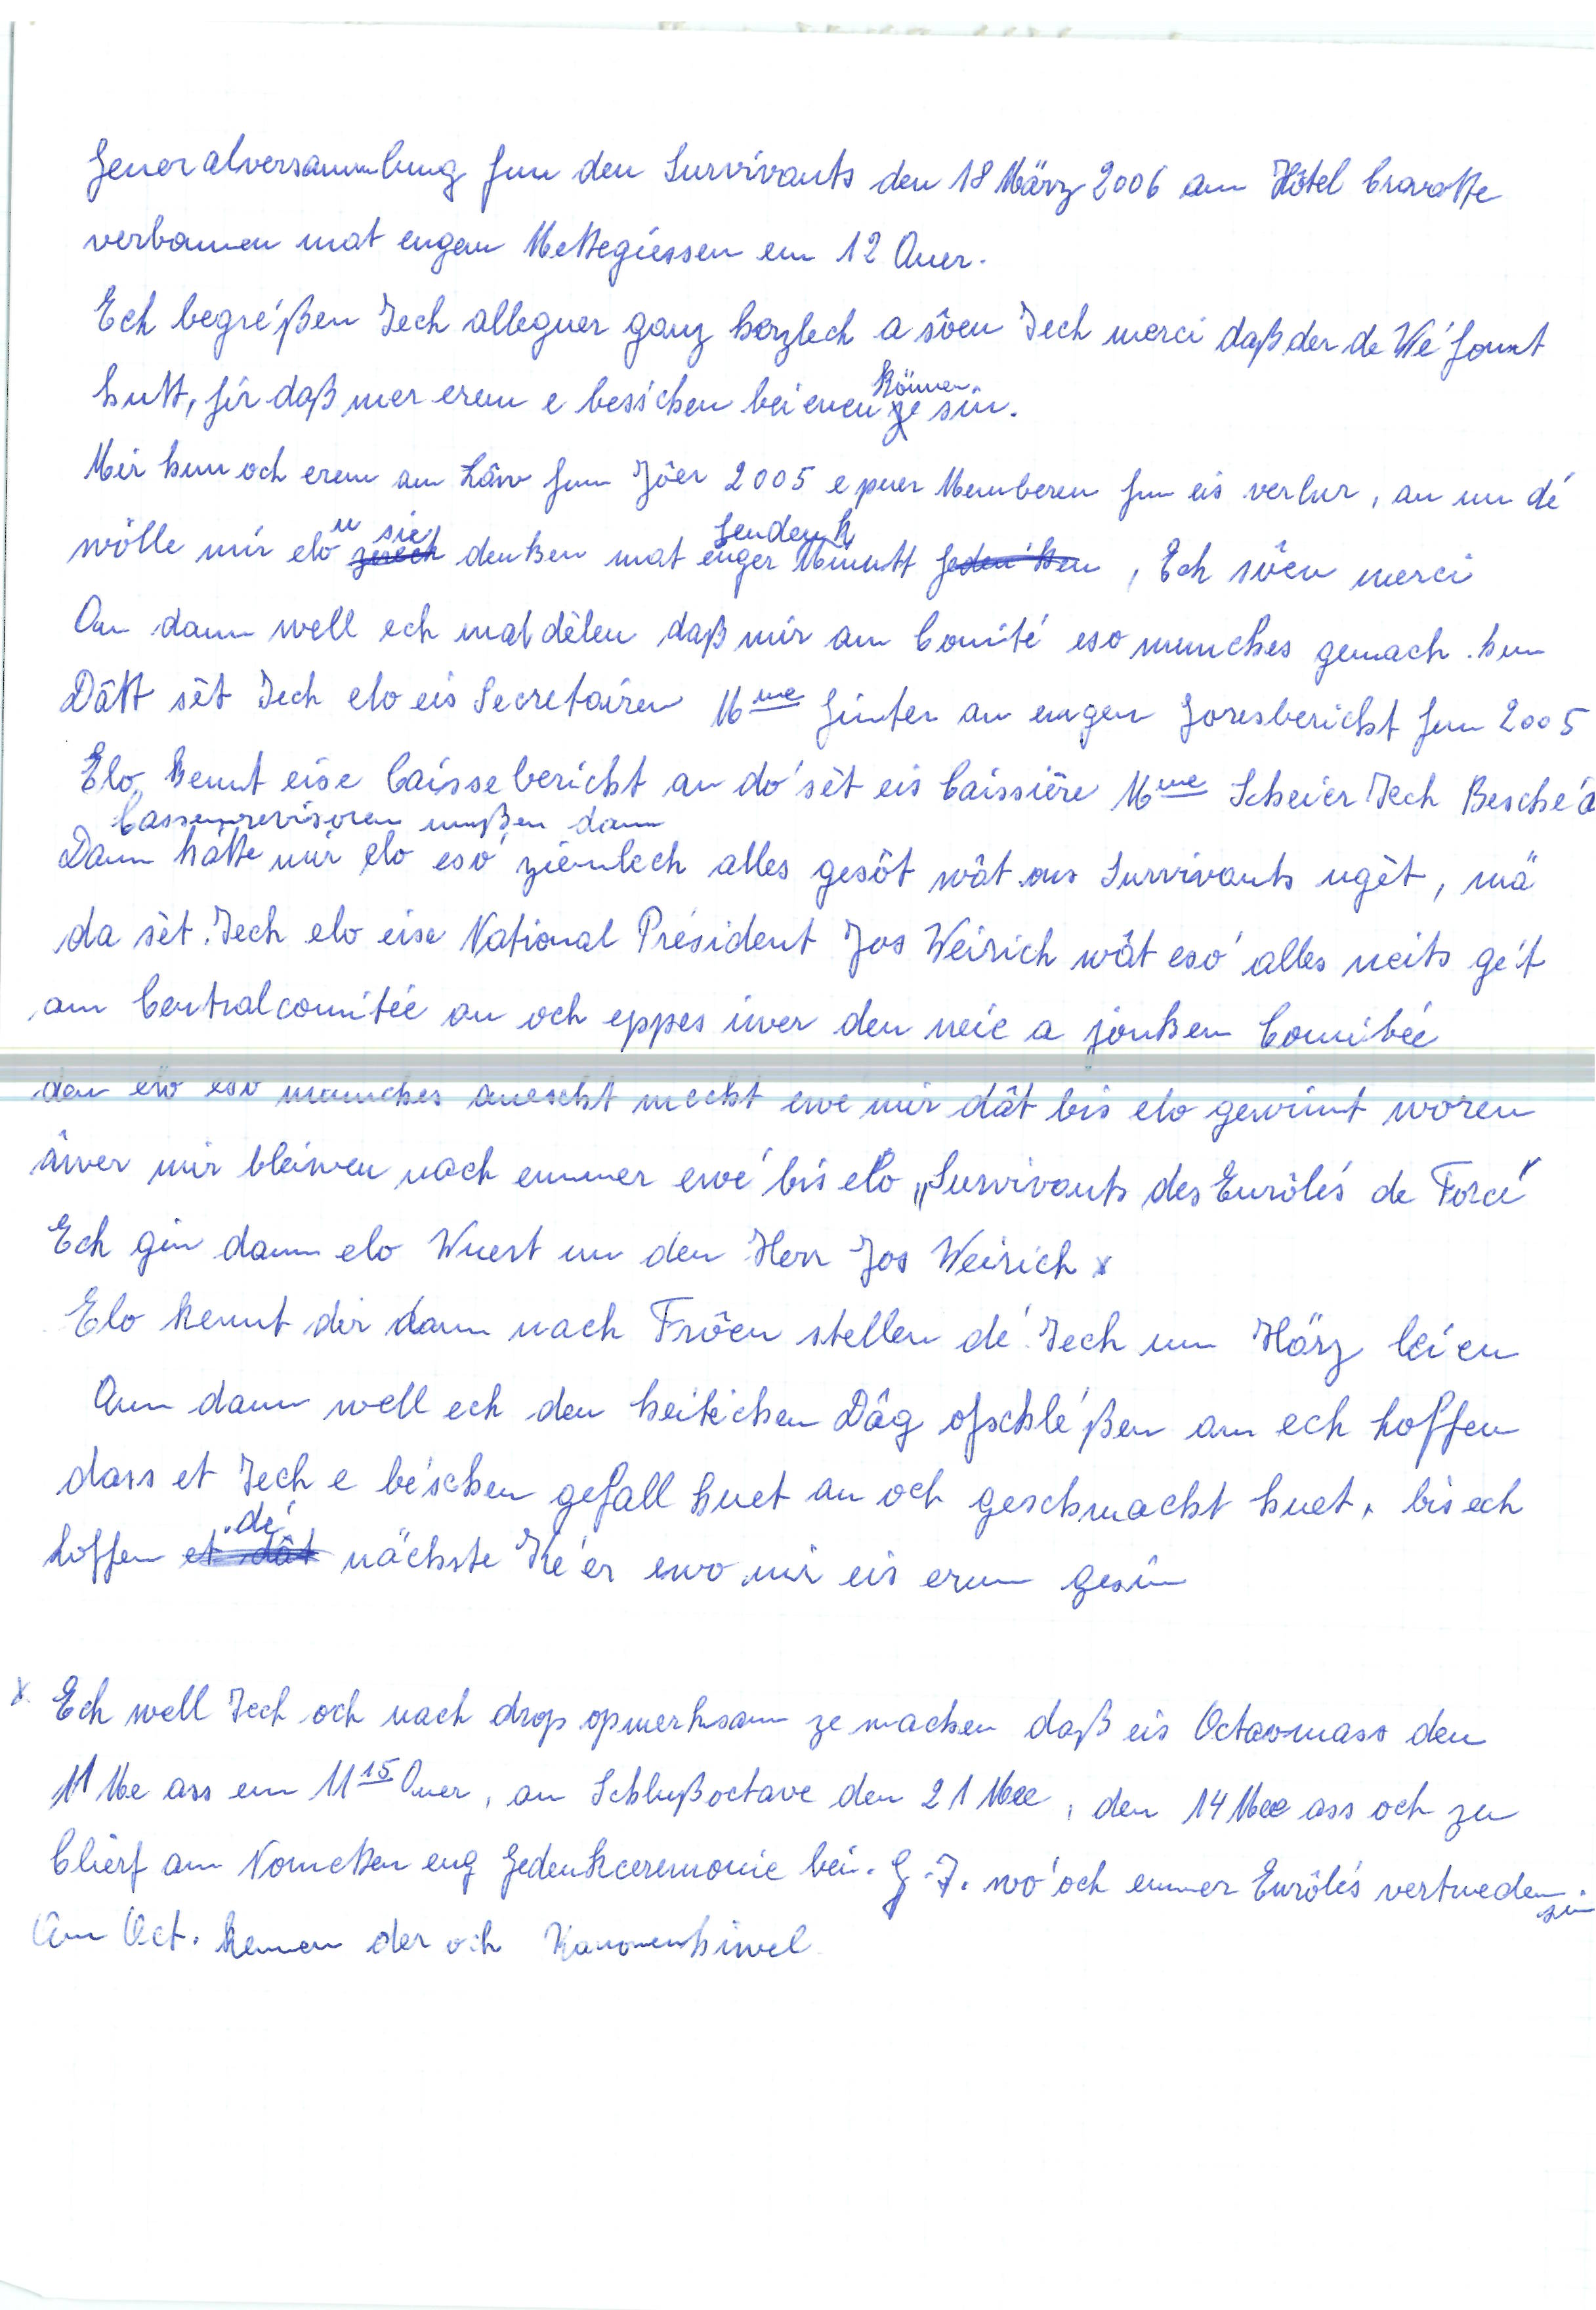 Generalversammlung fun den Survivants den 18 März 2006 am Hôtel Cravatte
verbonnen mat engem Mettegiessen em 12 Auer.
Ech begréßen Iech alleguer ganz herzlech a sôen Iech merci daß der de Wé fonnt
hutt, fir daß mer erem e bessichen beienen können ze sin.
Mir hun och erem am Lâw fum Jôer 2005 e puer Memberen fun eis verlur, an un dé
wölle mir elo u sie zereck denken mat enger Gendenk Minutt gedenken, Ech sôen merci
An dann well ech matdêlen daß mir am Comité eso munches gemach hun
Dâtt sèt Iech elo eis Secretairen Mme Ginter an engem Joresbericht fun 2005
Elo kennt eise Caissebericht an do sèt eis Caissière Mme Scheier Iech Beschéd
Cassenrevisoren mußen dann
Dann hätte mir elo esó ziemlech alles gesôt wât ons Survivants ugèt, mä
da sèt Iech elo eise National Président Jos Weirich wât esó alles neits gét
am Centralcomitée an och eppes iwer den neie a jonken Comitée
den elo eso munches anescht mecht ewe mir dât bis elo gewinnt woren
âwer mir bleiwen nach emmer ewé bis elo „Survivants des Enrôlés de Forcé"
Ech gin dann elo Wuert un den Herr Jos Weirich x
Elo kennt dir dann nach Frôen stellen dé Iech um Härz leien
Ann dann well ech den heitichen Dâg ofschléßen an ech hoffen
dass et Iech e béschen gefall huet an och geschmacht huet, bis ech
hoffen et dât dé nächste Kéer ewo mir eis erum gesin
x Ech well Iech och nach drop opmerksam ze machen daß eis Octavmass den
11 Me ass em 11 15 Auer, an Schlußoctave den 21 Mee, den 14 Mee ass och zu
Clierf am Nometten eng Gedenkceremonie bei. G.I. wó och emmer Enrôlés vertrueden sin
Am Oct. kennen der och Kanounenhiwel